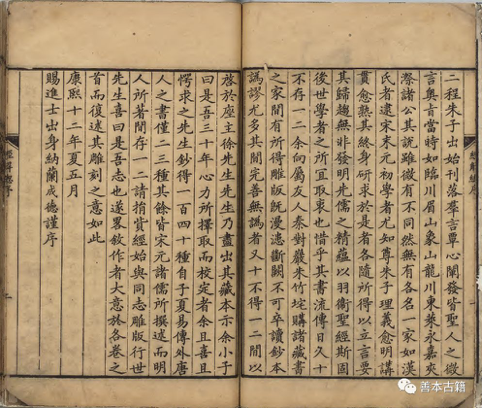 二程朱子出始刊落羣言覃心闡發皆聖人之微
言奧旨當時如臨川眉山象山龍川東萊永嘉夾
漈諸公其說雖微有不同然無有各名一家如漢
氏者逮宋末元初學者尤知尊朱子理義愈明講
貫愈熟其終身研求於是者各隨所得以立言要
其歸趨無非發明先儒之精蘊以羽衛聖經斯固
後世學者之所宜取衷也惜乎其書流傳日久十
不存一二余向屬友人秦對巖朱竹垞購諸藏書
之家間有所得雕版旣漫漶斷闕不可卒讀鈔本
譌謬尤多其間完善無譌者又十不得一二間以
啓於座主徐先生先生乃盡出其藏本示余小子
曰是吾三十年心力所擇取而校定者余且喜且
愕求之先生鈔得一百四十種自子夏易傳外唐
人之書僅二三種其餘皆宋元諸儒所撰述而明
人所著間存一二請捐貲經始與同志雕版行世
先生喜曰是吾志也遂畧敘作者大意於各卷之
首而復述其雕刻之意如此
康熙十二年夏五月
賜進士出身納蘭成德謹序
善本古籍